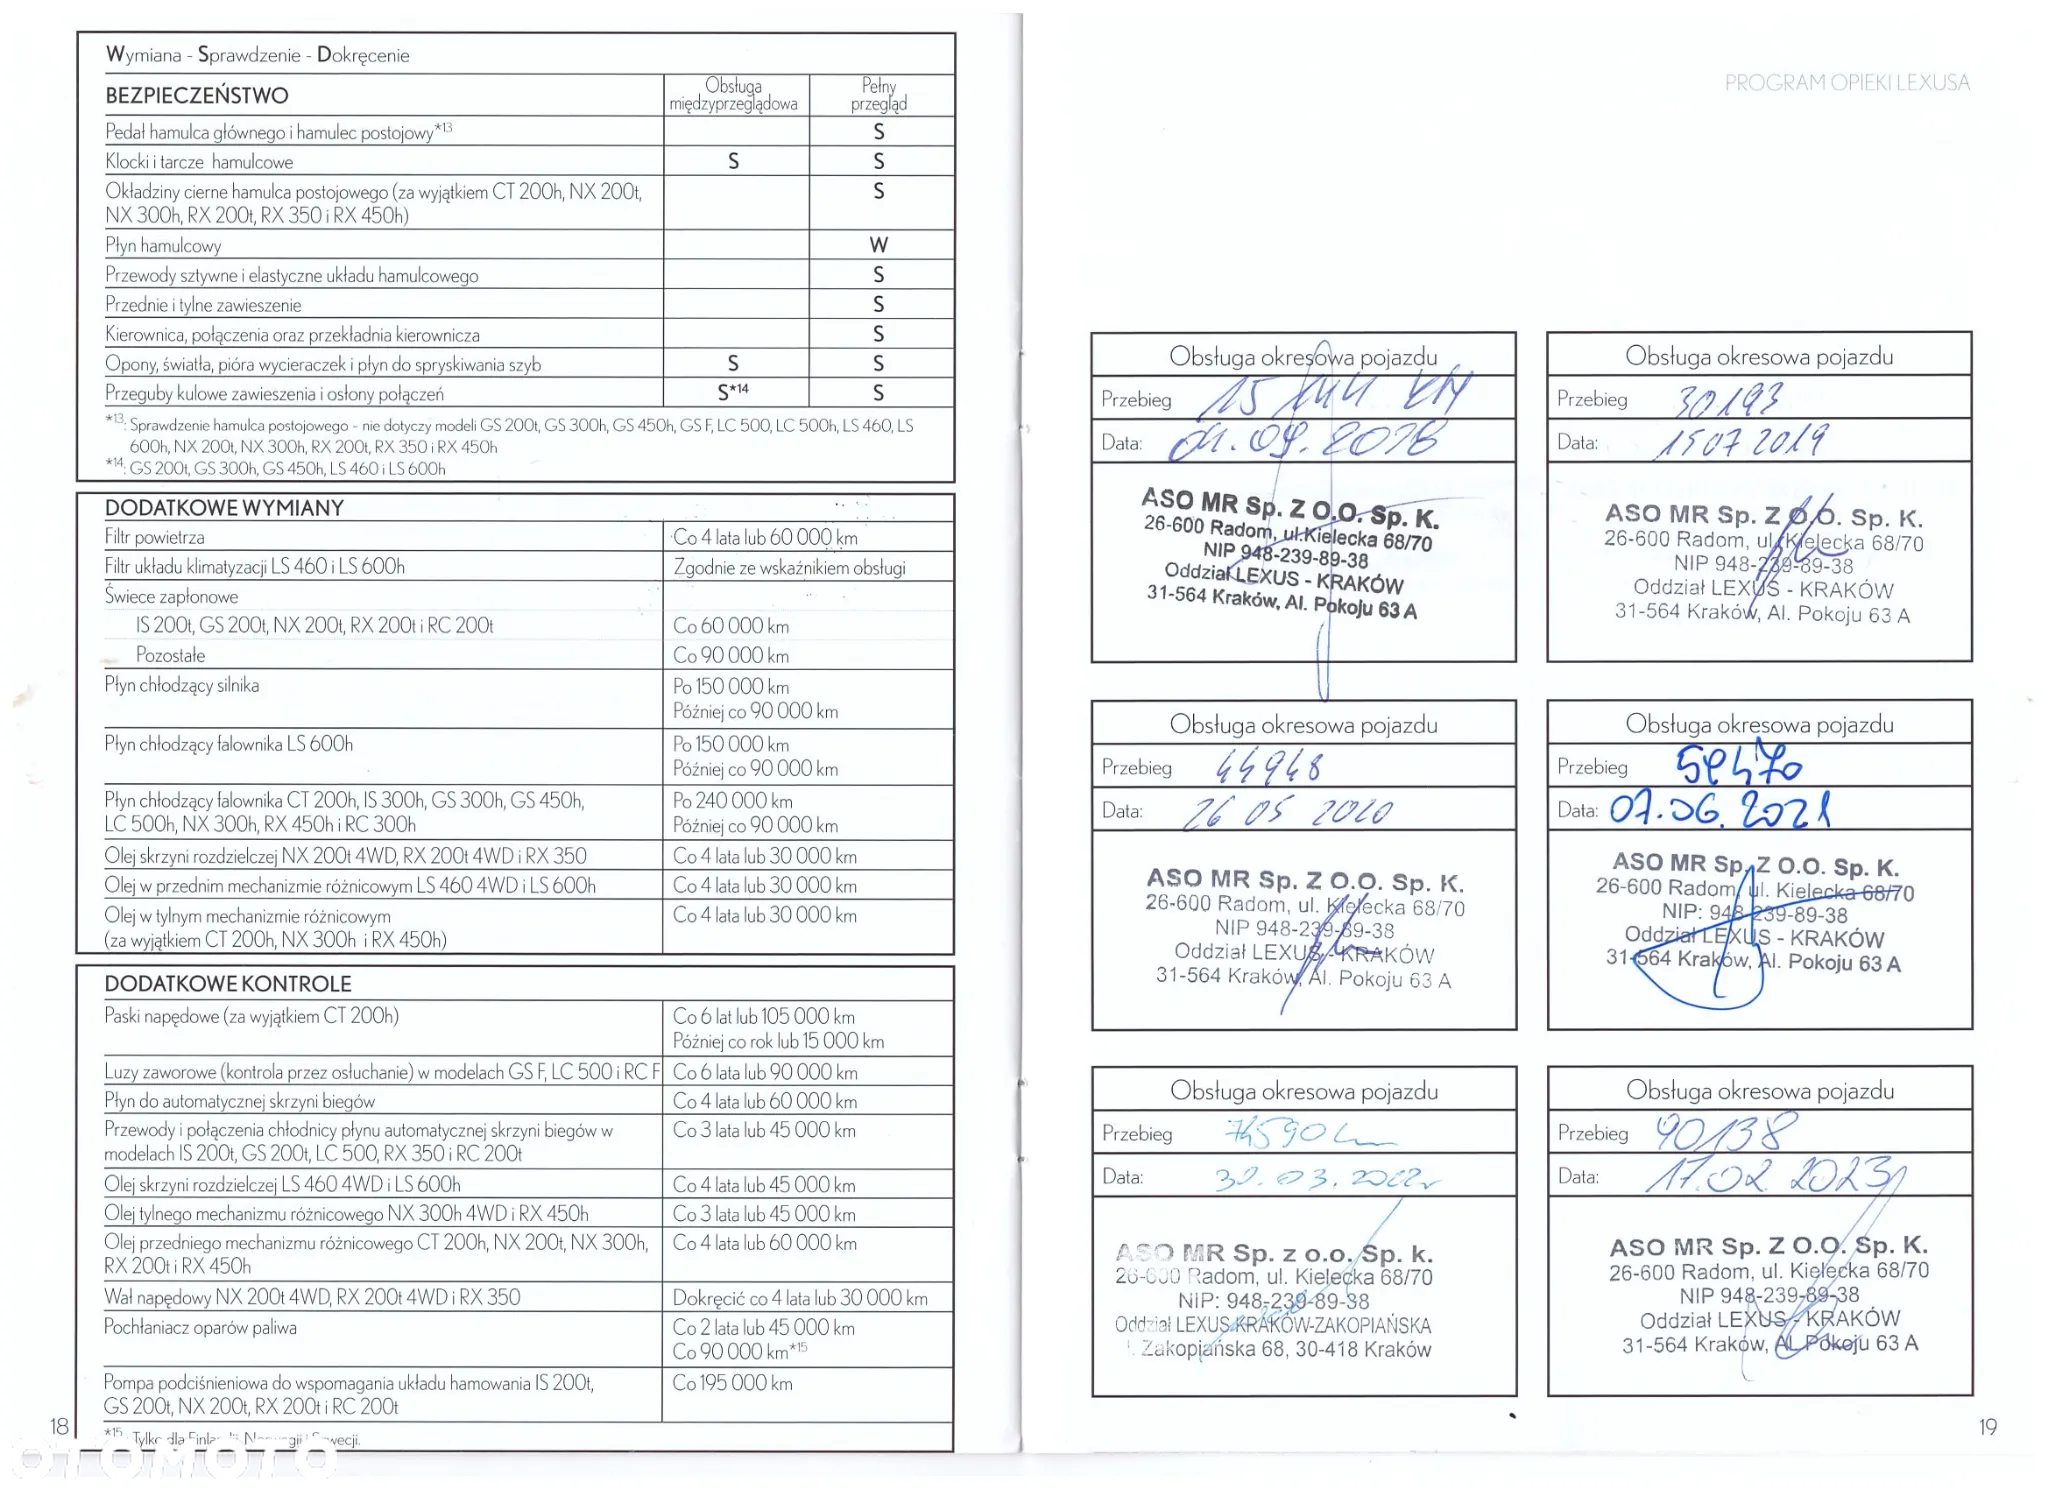 Wymiana - Sprawdzenie - Dokręcenie
BEZPIECZEŃSTWO
Obsługa międzyprzeglądowa
Pełny przegląd
Pedał hamulca głównego i hamulec postojowy*13 S
Klocki i tarcze hamulcowe S S
Okładziny cierne hamulca postojowego (za wyjątkiem CT 200h, NX 200t, S
NX 300h, RX 200t, RX 350 i RX 450h)
Płyn hamulcowy W
Przewody sztywne i elastyczne układu hamulcowego S
Przednie i tylne zawieszenie S
Kierownica, połączenia oraz przekładnia kierownicza S
Opony, światła, pióra wycieraczek i płyn do spryskiwania szyb S S
Przeguby kulowe zawieszenia i osłony połączeń S*14 S
*13: Sprawdzenie hamulca postojowego - nie dotyczy modeli GS 200t, GS 300h, GS 450h, GS F, LC 500, LC 500h, LS 460, LS
600h, NX 200t, NX 300h, RX 200t, RX 350 i RX 450h
*14: GS 200t, GS 300h, GS 450h, LS 460 i LS 600h
DODATKOWE WYMIANY
Filtr powietrza Co 4 lata lub 60 000 km
Filtr układu klimatyzacji LS 460 i LS 600h Zgodnie ze wskaźnikiem obsługi
Świece zapłonowe
IS 200t, GS 200t, NX 200t, RX 200t i RC 200t Co 60 000 km
Pozostałe Co 90 000 km
Płyn chłodzący silnika Po 150 000 km
Później co 90 000 km
Płyn chłodzący falownika LS 600h Po 150 000 km
Później co 90 000 km
Płyn chłodzący falownika CT 200h, IS 300h, GS 300h, GS 450h, Po 240 000 km
LC 500h, NX 300h, RX 450h i RC 300h Później co 90 000 km
Olej skrzyni rozdzielczej NX 200t 4WD, RX 200t 4WD i RX 350 Co 4 lata lub 30 000 km
Olej w przednim mechanizmie różnicowym LS 460 4WD i LS 600h Co 4 lata lub 30 000 km
Olej w tylnym mechanizmie różnicowym Co 4 lata lub 30 000 km
(za wyjątkiem CT 200h, NX 300h i RX 450h)
DODATKOWE KONTROLE
Paski napędowe (za wyjątkiem CT 200h) Co 6 lat lub 105 000 km
Później co rok lub 15 000 km
Luzy zaworowe (kontrola przez osłuchanie) w modelach GS F, LC 500 i RC F Co 6 lata lub 90 000 km
Płyn do automatycznej skrzyni biegów Co 4 lata lub 60 000 km
Przewody i połączenia chłodnicy płynu automatycznej skrzyni biegów w Co 3 lata lub 45 000 km
modelach IS 200t, GS 200t, LC 500, RX 350 i RC 200t
Olej skrzyni rozdzielczej LS 460 4WD i LS 600h Co 4 lata lub 45 000 km
Olej tylnego mechanizmu różnicowego NX 300h 4WD i RX 450h Co 3 lata lub 45 000 km
Olej przedniego mechanizmu różnicowego CT 200h, NX 200t, NX 300h, Co 4 lata lub 60 000 km
RX 200t i RX 450h
Wał napędowy NX 200t 4WD, RX 200t 4WD i RX 350 Dokręcić co 4 lata lub 30 000 km
Pochłaniacz oparów paliwa Co 2 lata lub 45 000 km
Co 90 000 km*15
Pompa podciśnieniowa do wspomagania układu hamowania IS 200t, Co 195 000 km
GS 200t, NX 200t, RX 200t i RC 200t
*15: Tylko dla Finlandii, Norwegii i Szwecji.
18
OTOMOTO
PROGRAM OPIEKI LEXUSA
Obsługa okresowa pojazdu
Przebieg 15 KM
Data: 04.09.2018
ASO MR Sp. Z O.O. Sp. K.
26-600 Radom, ul.Kielecka 68/70
NIP 948-239-89-38
Oddział LEXUS - KRAKÓW
31-564 Kraków, Al. Pokoju 63 A
Obsługa okresowa pojazdu
Przebieg 30193
Data: 15 07 2019
ASO MR Sp. Z O.O. Sp. K.
26-600 Radom, ul. Kielecka 68/70
NIP 948-239-89-38
Oddział LEXUS - KRAKÓW
31-564 Kraków, Al. Pokoju 63 A
Obsługa okresowa pojazdu
Przebieg 44948
Data: 26 05 2020
ASO MR Sp. Z O.O. Sp. K.
26-600 Radom, ul. Kielecka 68/70
NIP 948-239-89-38
Oddział LEXUS - KRAKÓW
31-564 Kraków, Al. Pokoju 63 A
Obsługa okresowa pojazdu
Przebieg 59470
Data: 07.06.2021
ASO MR Sp. Z O.O. Sp. K.
26-600 Radom, ul. Kielecka 68/70
NIP: 948-239-89-38
Oddział LEXUS - KRAKÓW
31-564 Kraków, Al. Pokoju 63 A
Obsługa okresowa pojazdu
Przebieg 74590 km
Data: 30.03.2022r
ASO MR Sp. z o.o. Sp. k.
26-600 Radom, ul. Kielecka 68/70
NIP: 948-239-89-38
Oddział LEXUS-KRAKÓW-ZAKOPIAŃSKA
Zakopiańska 68, 30-418 Kraków
Obsługa okresowa pojazdu
Przebieg 90138
Data: 17.02.2023
ASO MR Sp. Z O.O. Sp. K.
26-600 Radom, ul. Kielecka 68/70
NIP 948-239-89-38
Oddział LEXUS - KRAKÓW
31-564 Kraków, Al. Pokoju 63 A
19